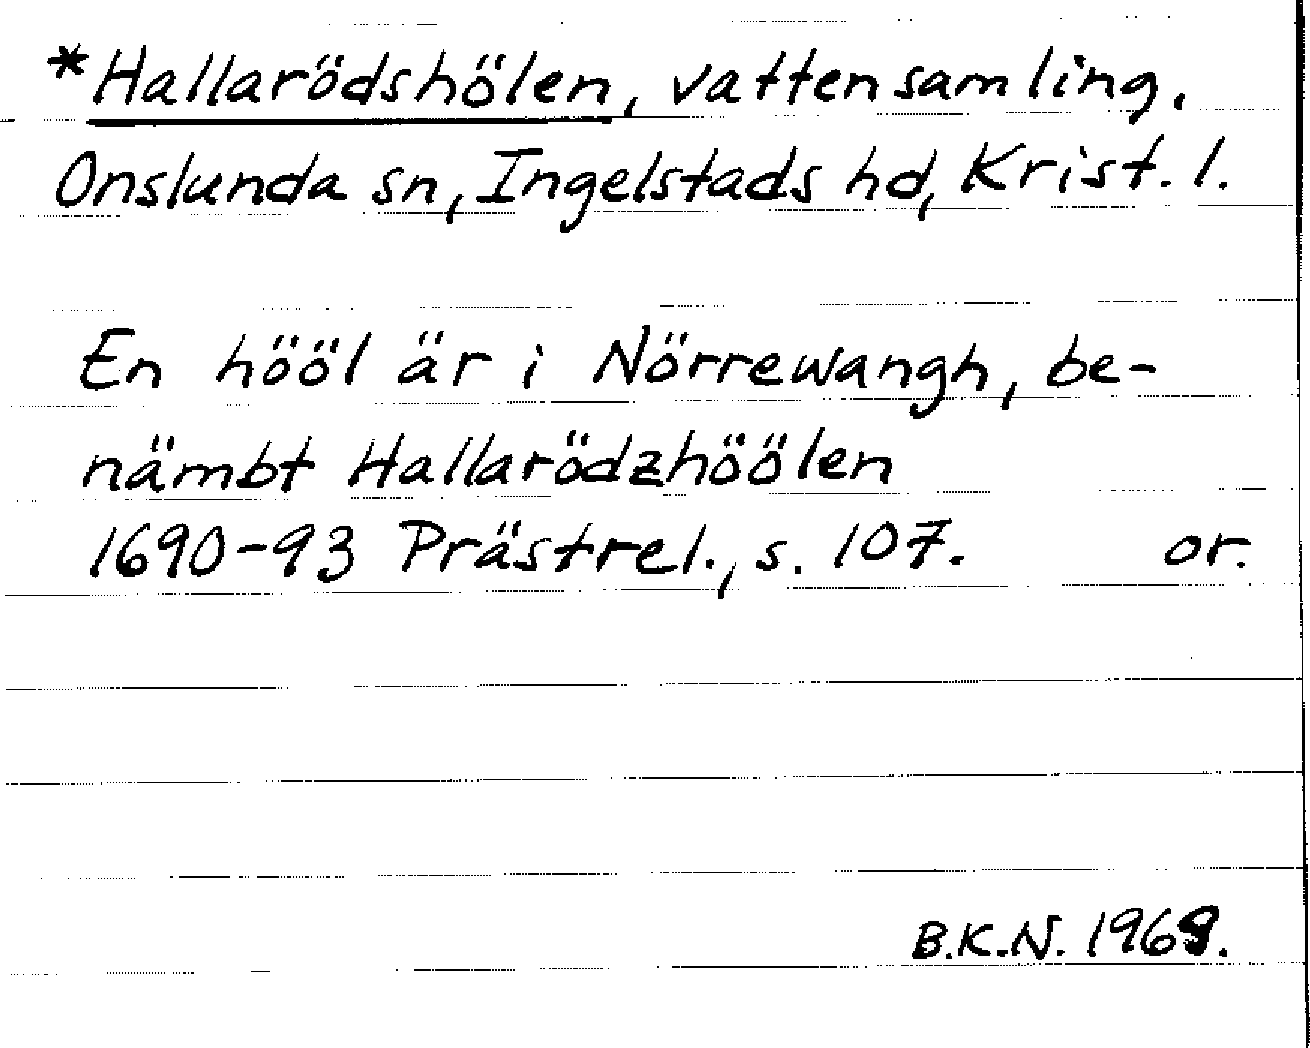 *Hallarödshölen, vattensamling.
Onslunda sn, Ingelstads hd, Krist. l.
En hööl är i Nörrewangh, be-
nämbt Hallarödzhöölen
1690-93 Prästrel., s. 107. or.
B.K.N. 1969.